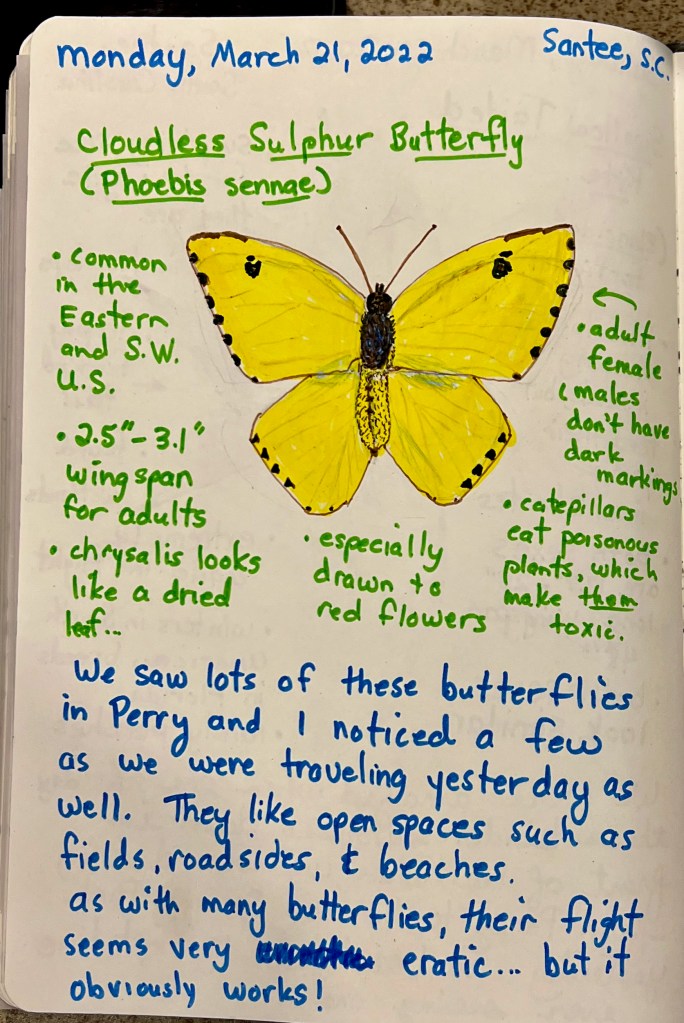 monday, March 21, 2022
Santee, S.C.
Cloudless Sulphur Butterfly
(Phoebis sennae)
• common
in the
Eastern
and S.W.
U.S.
• 2.5"-3.1"
wing span
for adults
• chrysalis looks
like a dried
leaf...
• especially
drawn to
red flowers
• adult
female
(males
don't have
dark
markings
• catepillars
eat poisonous
plants, which
make them
toxic.
We saw lots of these butterflies
in Perry and I noticed a few
as we were traveling yesterday as
well. They like open spaces such as
fields, roadsides, & beaches.
as with many butterflies, their flight
seems very eratic... but it
obviously works!